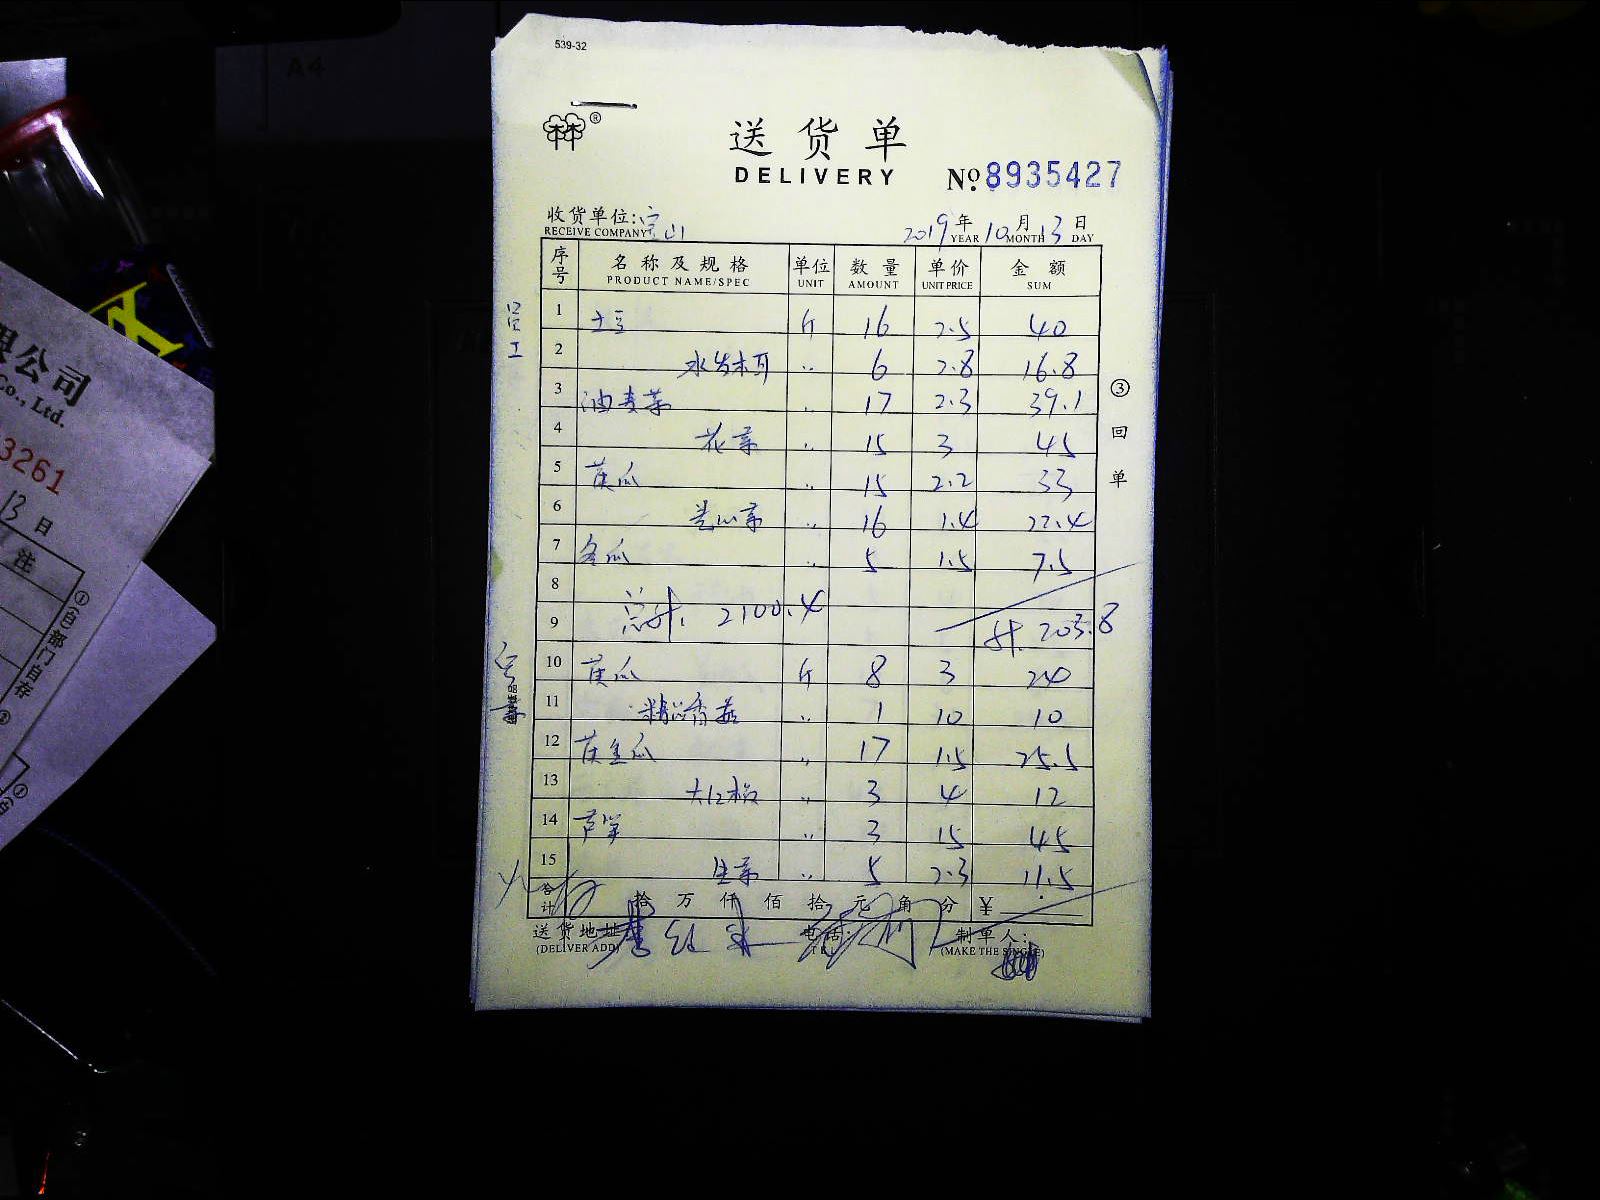 A4
539-32
林®
送货单
DELIVERY
№8935427
收货单位:宝山
RECEIVE COMPANY
2019年10月13日
YEAR MONTH DAY
序号 名称及规格 单位 数量 单价 金额
PRODUCT NAME/SPEC UNIT AMOUNT UNIT PRICE SUM
1 土豆 斤 16 2.5 40
2 水发木耳 〃 6 2.8 16.8
3 油麦菜 〃 17 2.3 39.1
4 花菜 〃 15 3 45
5 黄瓜 〃 15 2.2 33
6 卷心菜 〃 16 1.4 22.4
7 冬瓜 〃 5 1.5 7.5
8
9 总计. 2100.4 计. 203.8
10 黄瓜 斤 8 3 24
11 精品香菇 〃 1 10 10
12 黄金瓜 〃 17 1.5 25.5
13 大红椒 〃 3 4 12
14 芦笋 〃 3 15 45
15 生菜 〃 5 2.3 11.5
合计 拾 万 仟 佰 拾 元 角 分 ¥
送货地址 电话: 制单人:
(DELIVER ADD) TEL (MAKE THE SINGLE)
③回单
限公司
Co., Ltd.
3261
13日
注
①(白)部门自存